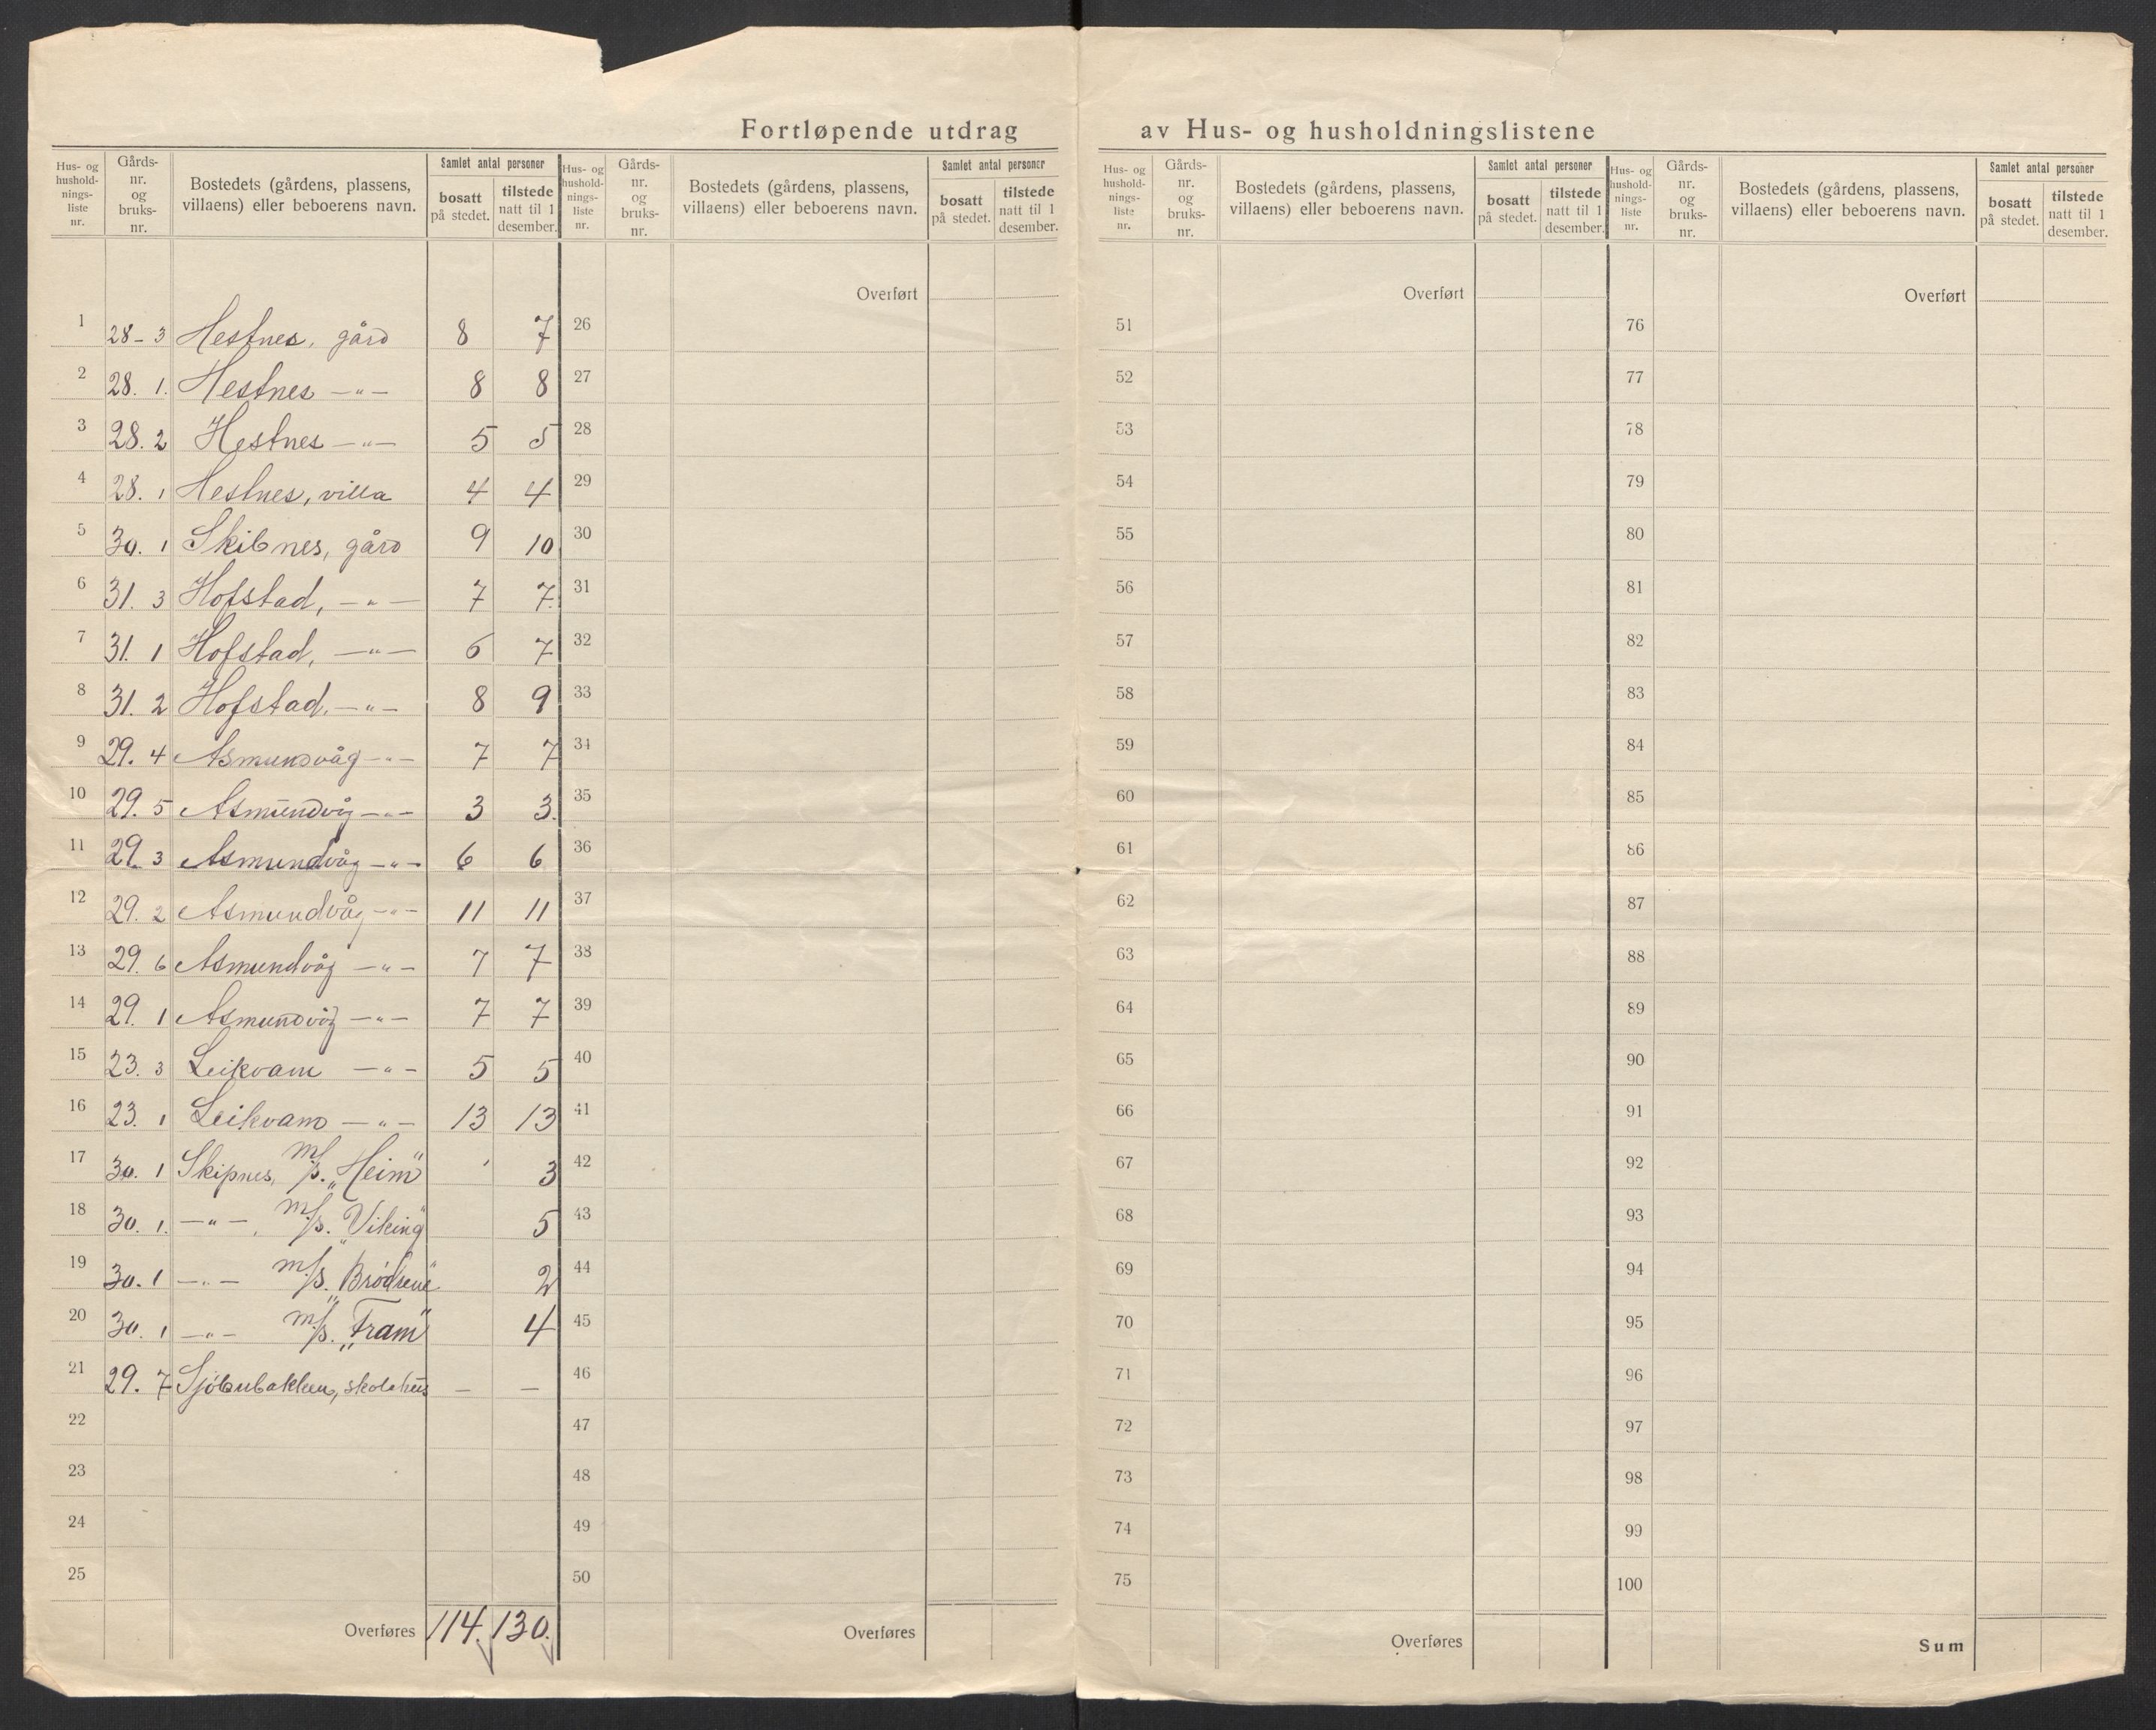 Fortløpende utdrag av Hus- og husholdningslistene
Hus- og hushold-nings-liste nr. | Gårds-nr. og bruks-nr. | Bostedets (gårdens, plassens, villaens) eller beboerens navn. | Samlet antal personer | bosatt på stedet. | tilstede natt til 1 desember.
1 28-3 Hestnes, gård 8 7
2 28. 1. Hestnes —"— 8 8
3 28. 2 Hestnes —"— 5 5
4 28. 1 Hestnes, villa 4 4
5 30. 1 Skibnes, gård 9 10
6 31. 3 Hofstad, —"— 7 7.
7 31. 1 Hofstad, —"— 6 7
8 31. 2 Hofstad, —"— 8 9
9 29. 4 Asmundvåg —"— 7 7
10 29. 5 Asmundvåg —"— 3 3.
11 29. 3 Asmundvåg —"— 6 6
12 29. 2 Asmundvåg —"— 11 11
13 29. 6 Asmundvåg —"— 7 7
14 29. 1 Asmundvåg —"— 7 7
15 23. 3 Leikvam —"— 5 5
16 23. 1 Leikvam —"— 13 13
17 30. 1 Skipnes, m/s. „Heim" 3
18 30. 1. —"—, m/s. „Viking" 5
19 30. 1 —"— m/s. „Brødrene" 2
20 30. 1 —"— m/s. „Fram" 4
21 29. 7 skolehus — —
22
23
24
25
Overføres 114. 130.
Hus- og hushold-nings-liste nr. | Gårds-nr. og bruks-nr. | Bostedets (gårdens, plassens, villaens) eller beboerens navn. | Samlet antal personer | bosatt på stedet. | tilstede natt til 1 desember.
Overført
26
27
28
29
30
31
32
33
34
35
36
37
38
39
40
41
42
43
44
45
46
47
48
49
50
Overføres
Hus- og hushold-nings-liste nr. | Gårds-nr. og bruks-nr. | Bostedets (gårdens, plassens, villaens) eller beboerens navn. | Samlet antal personer | bosatt på stedet. | tilstede natt til 1 desember.
Overført
51
52
53
54
55
56
57
58
59
60
61
62
63
64
65
66
67
68
69
70
71
72
73
74
75
Overføres
Hus- og hushold-nings-liste nr. | Gårds-nr. og bruks-nr. | Bostedets (gårdens, plassens, villaens) eller beboerens navn. | Samlet antal personer | bosatt på stedet. | tilstede natt til 1 desember.
Overført
76
77
78
79
80
81
82
83
84
85
86
87
88
89
90
91
92
93
94
95
96
97
98
99
100
Sum